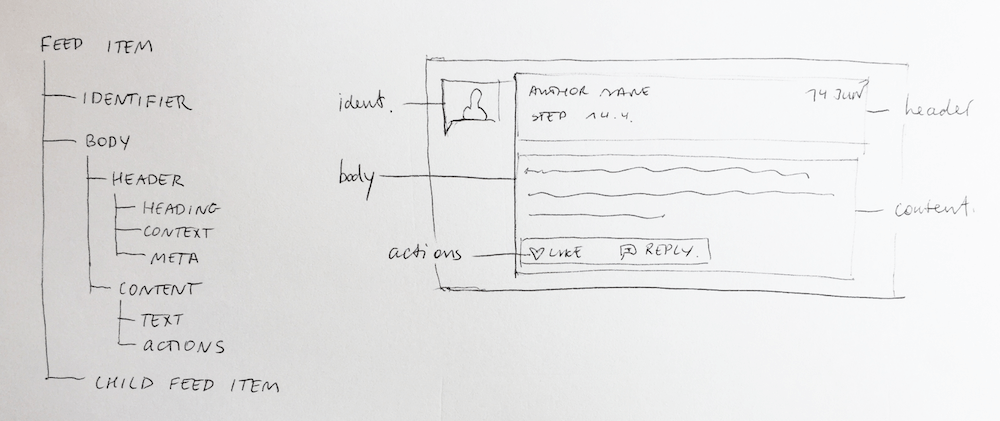 FEED ITEM
IDENTIFIER
BODY
HEADER
HEADING
CONTEXT
META
CONTENT
TEXT
ACTIONS
CHILD FEED ITEM
ident.
AUTHOR NAME
14 JUN
STEP 14.4.
header
body
content.
actions
LIKE
REPLY.